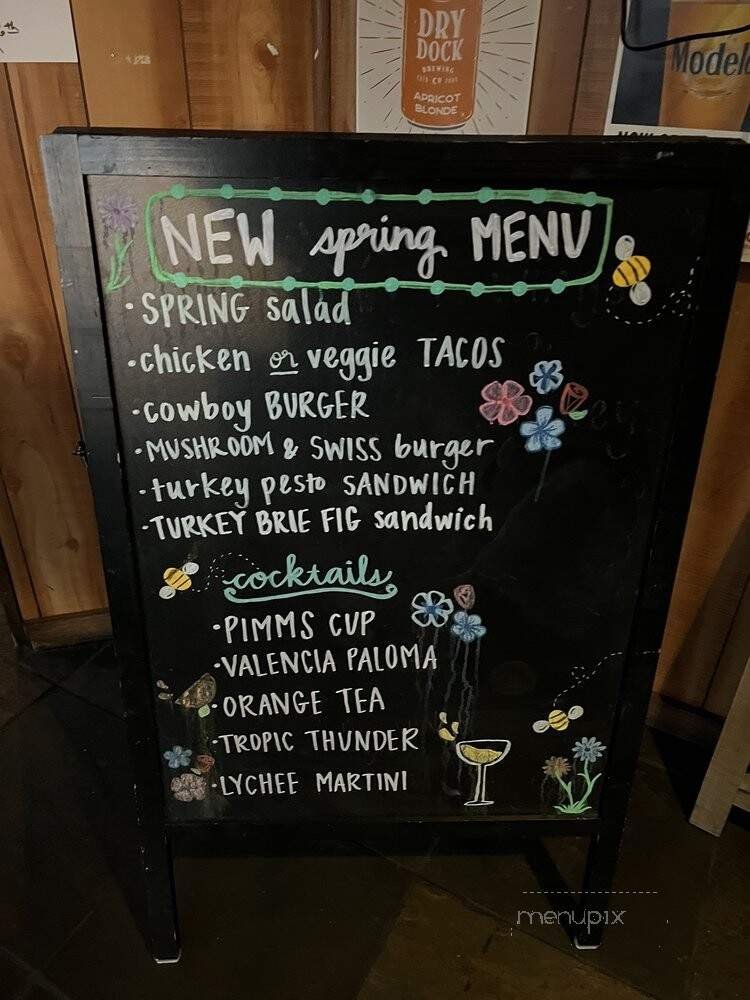 DRY
DOCK
BREWING
CO
APRICOT
BLONDE
Modelo
NEW spring MENU
• SPRING salad
• chicken or veggie TACOS
• cowboy BURGER
• MUSHROOM & SWISS burger
• turkey pesto SANDWICH
• TURKEY BRIE FIG sandwich
cocktails
• PIMMS CUP
• VALENCIA PALOMA
• ORANGE TEA
• TROPIC THUNDER
• LYCHEE MARTINI
menupix